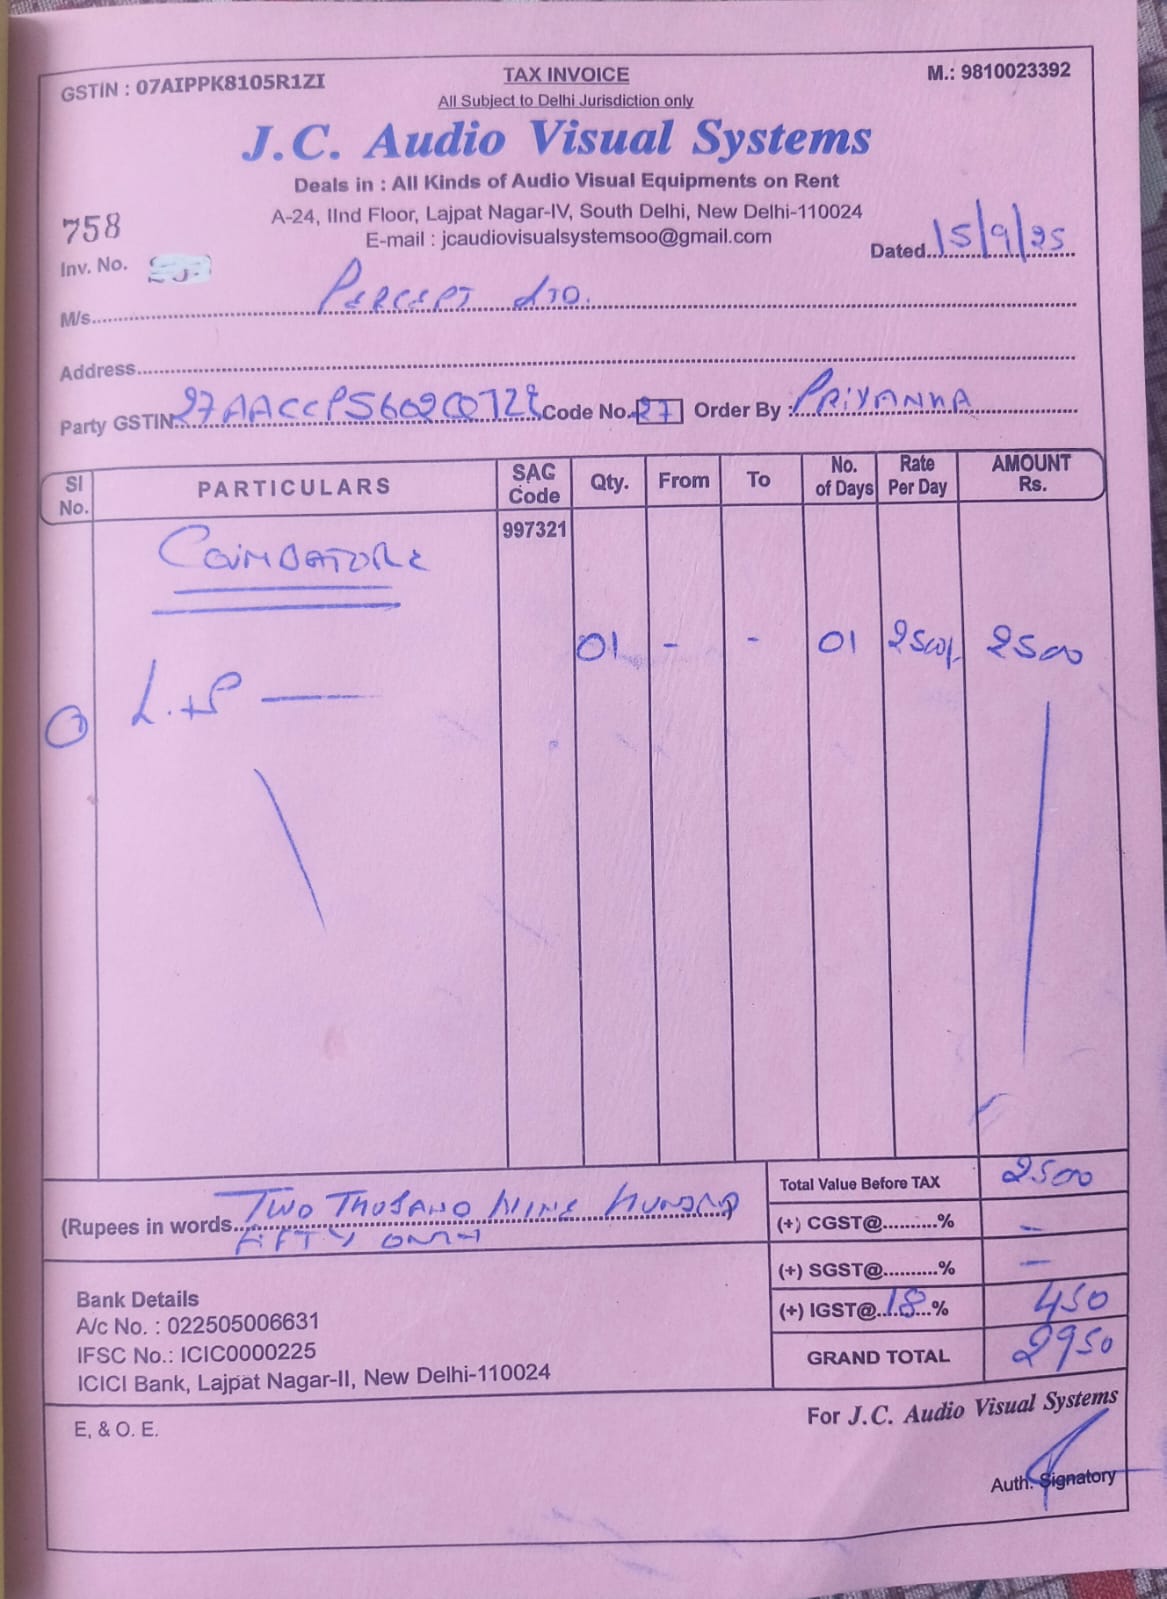 GSTIN : 07AIPPK8105R1ZI
TAX INVOICE
M.: 9810023392
All Subject to Delhi Jurisdiction only
J.C. Audio Visual Systems
Deals in : All Kinds of Audio Visual Equipments on Rent
A-24, IInd Floor, Lajpat Nagar-IV, South Delhi, New Delhi-110024
E-mail : jcaudiovisualsystemsoo@gmail.com
758
Inv. No.
Dated 15/9/25
M/s. PERCEPT LTD.
Address
Party GSTIN Code No. 27 Order By : PRIYANKA
Sl No. PARTICULARS SAG Code Qty. From To No. of Days Rate Per Day AMOUNT Rs.
997321
COIMBATORE
01 - - 01 2500/- 2500
L.+P
Total Value Before TAX 2500
(Rupees in words TWO THOUSAND NINE HUNDRED
FIFTY ONLY
(+) CGST@..........% -
(+) SGST@..........% -
(+) IGST@ 18 % 450
GRAND TOTAL 2950
Bank Details
A/c No. : 022505006631
IFSC No.: ICIC0000225
ICICI Bank, Lajpat Nagar-II, New Delhi-110024
E, & O. E.
For J.C. Audio Visual Systems
Auth. Signatory